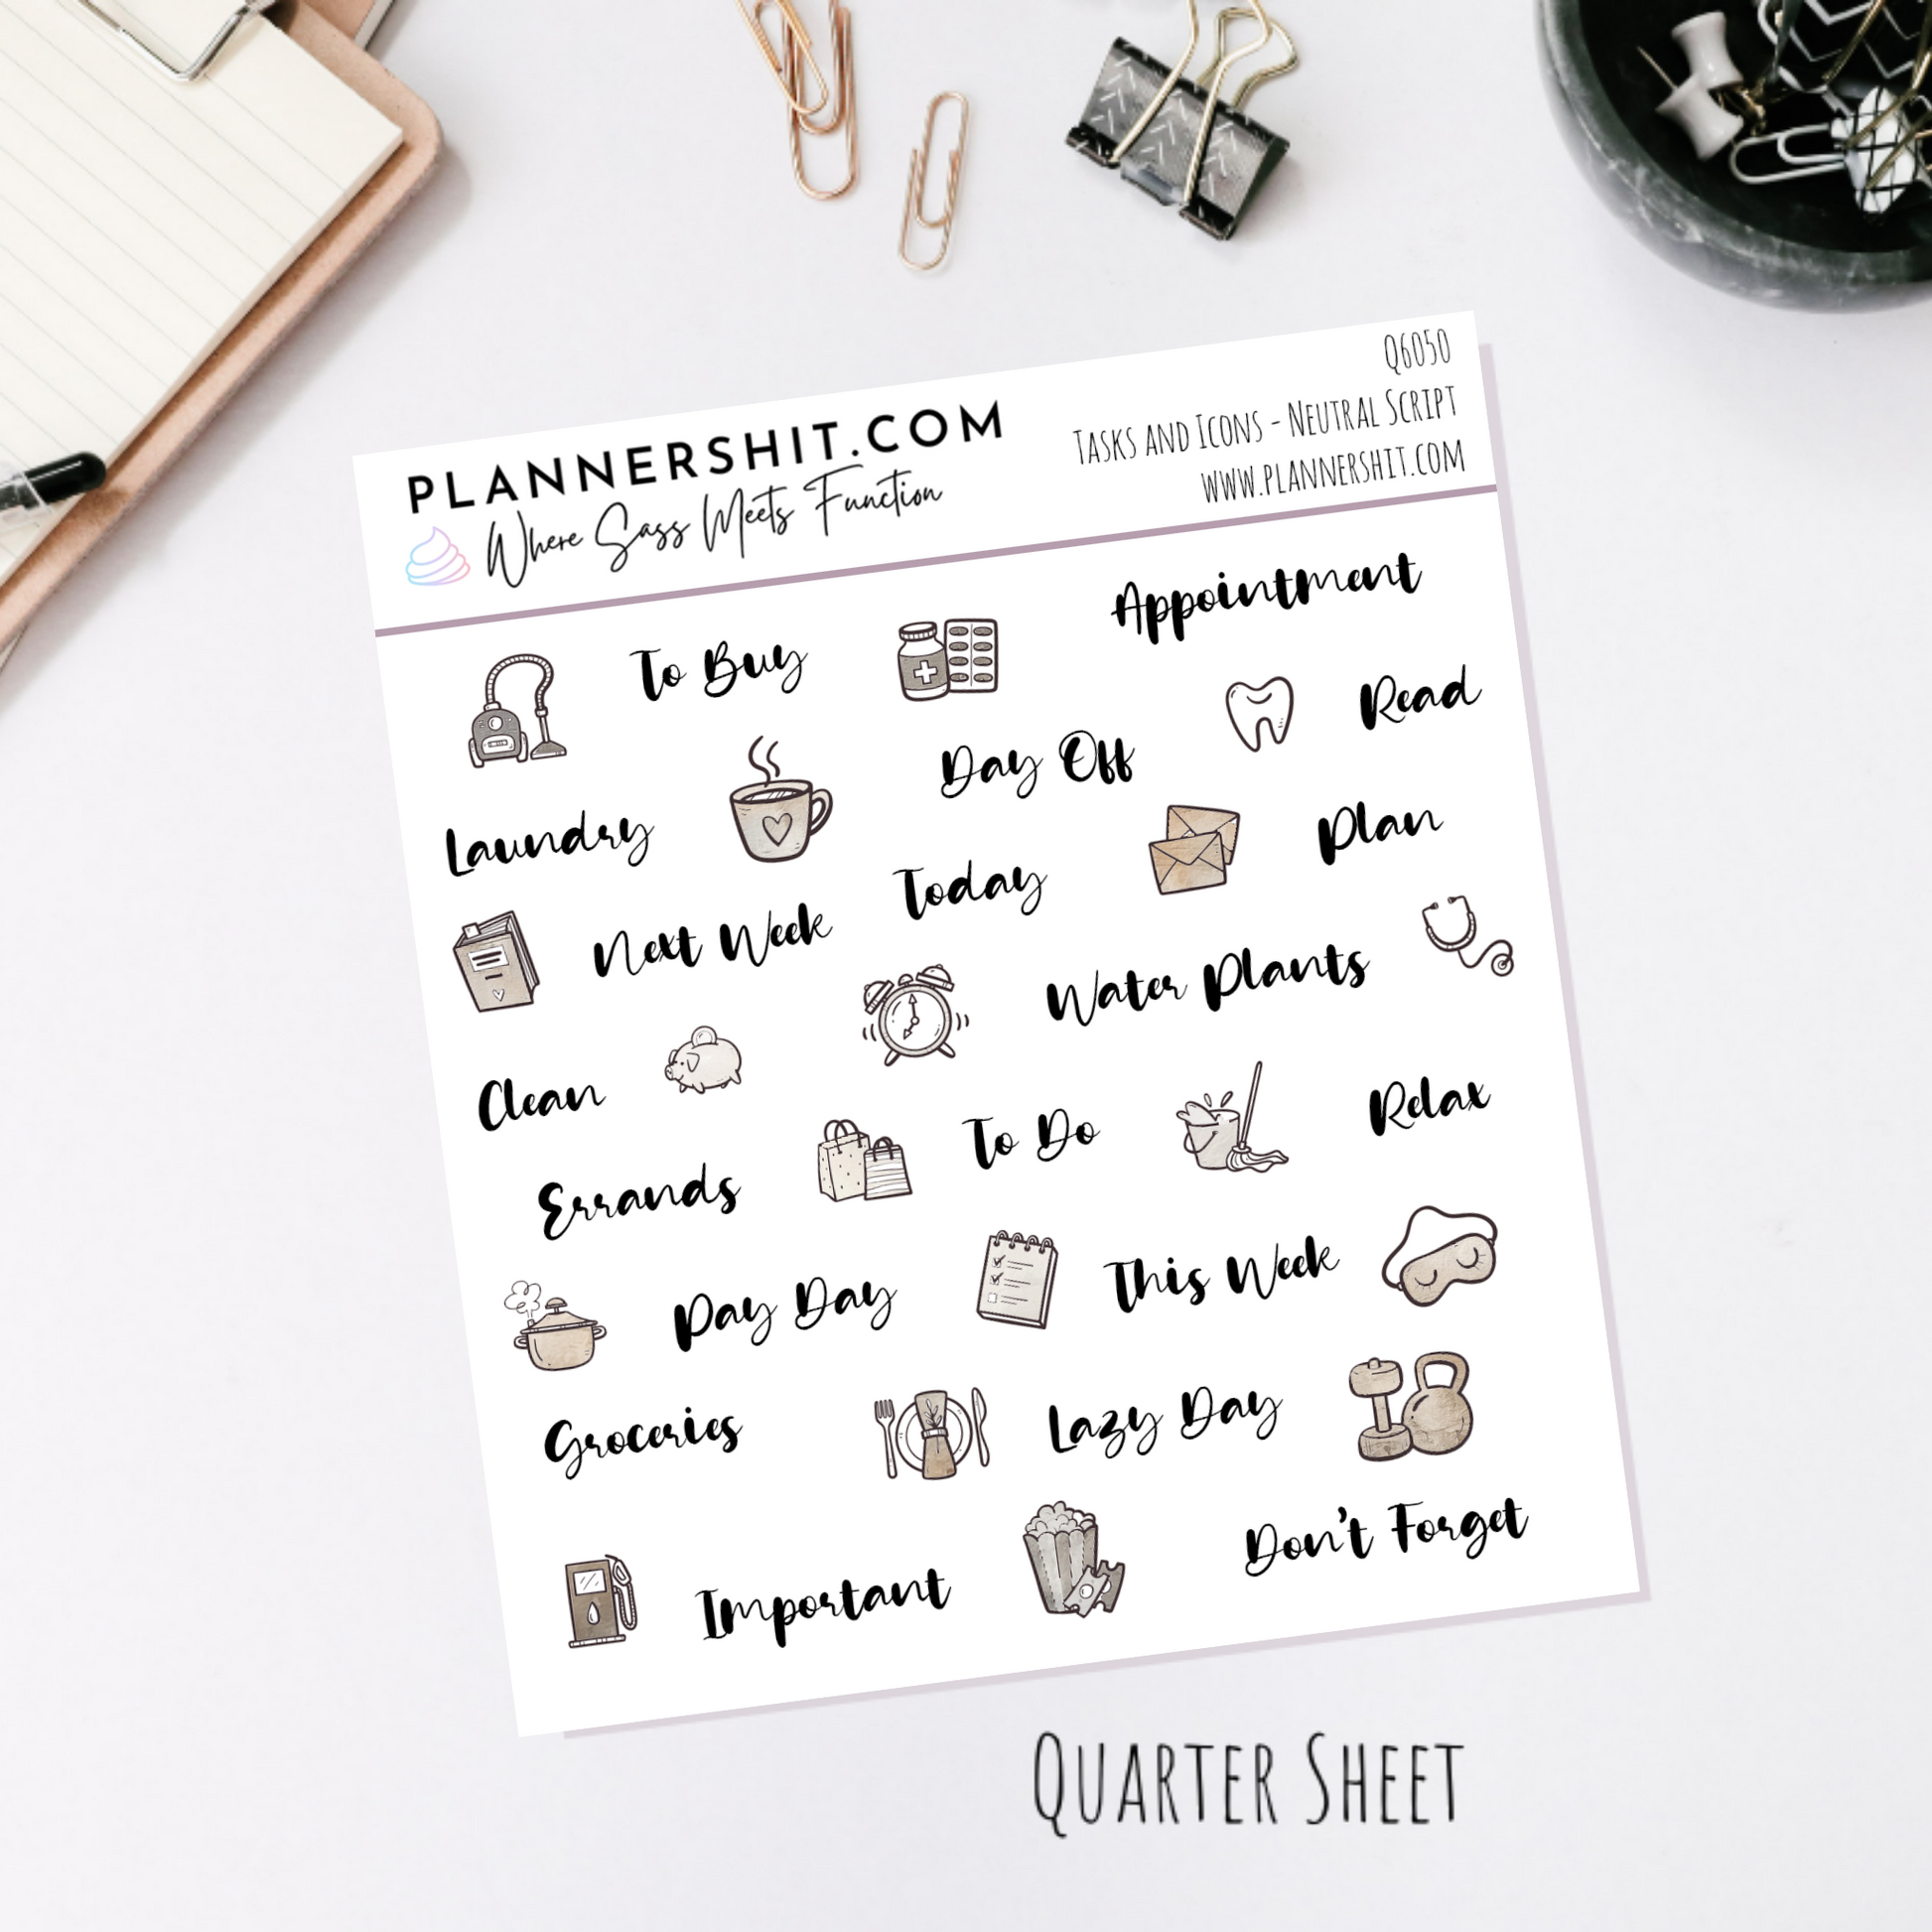 PLANNERSHIT.COM
Where Sass Meets Function
Q6050
Tasks and Icons - Neutral Script
www.plannershit.com
Appointment
To Buy
Read
Day Off
Laundry
Plan
Today
Next Week
Water Plants
Clean
Relax
To Do
Errands
This Week
Pay Day
Lazy Day
Groceries
Don't Forget
Important
Quarter Sheet